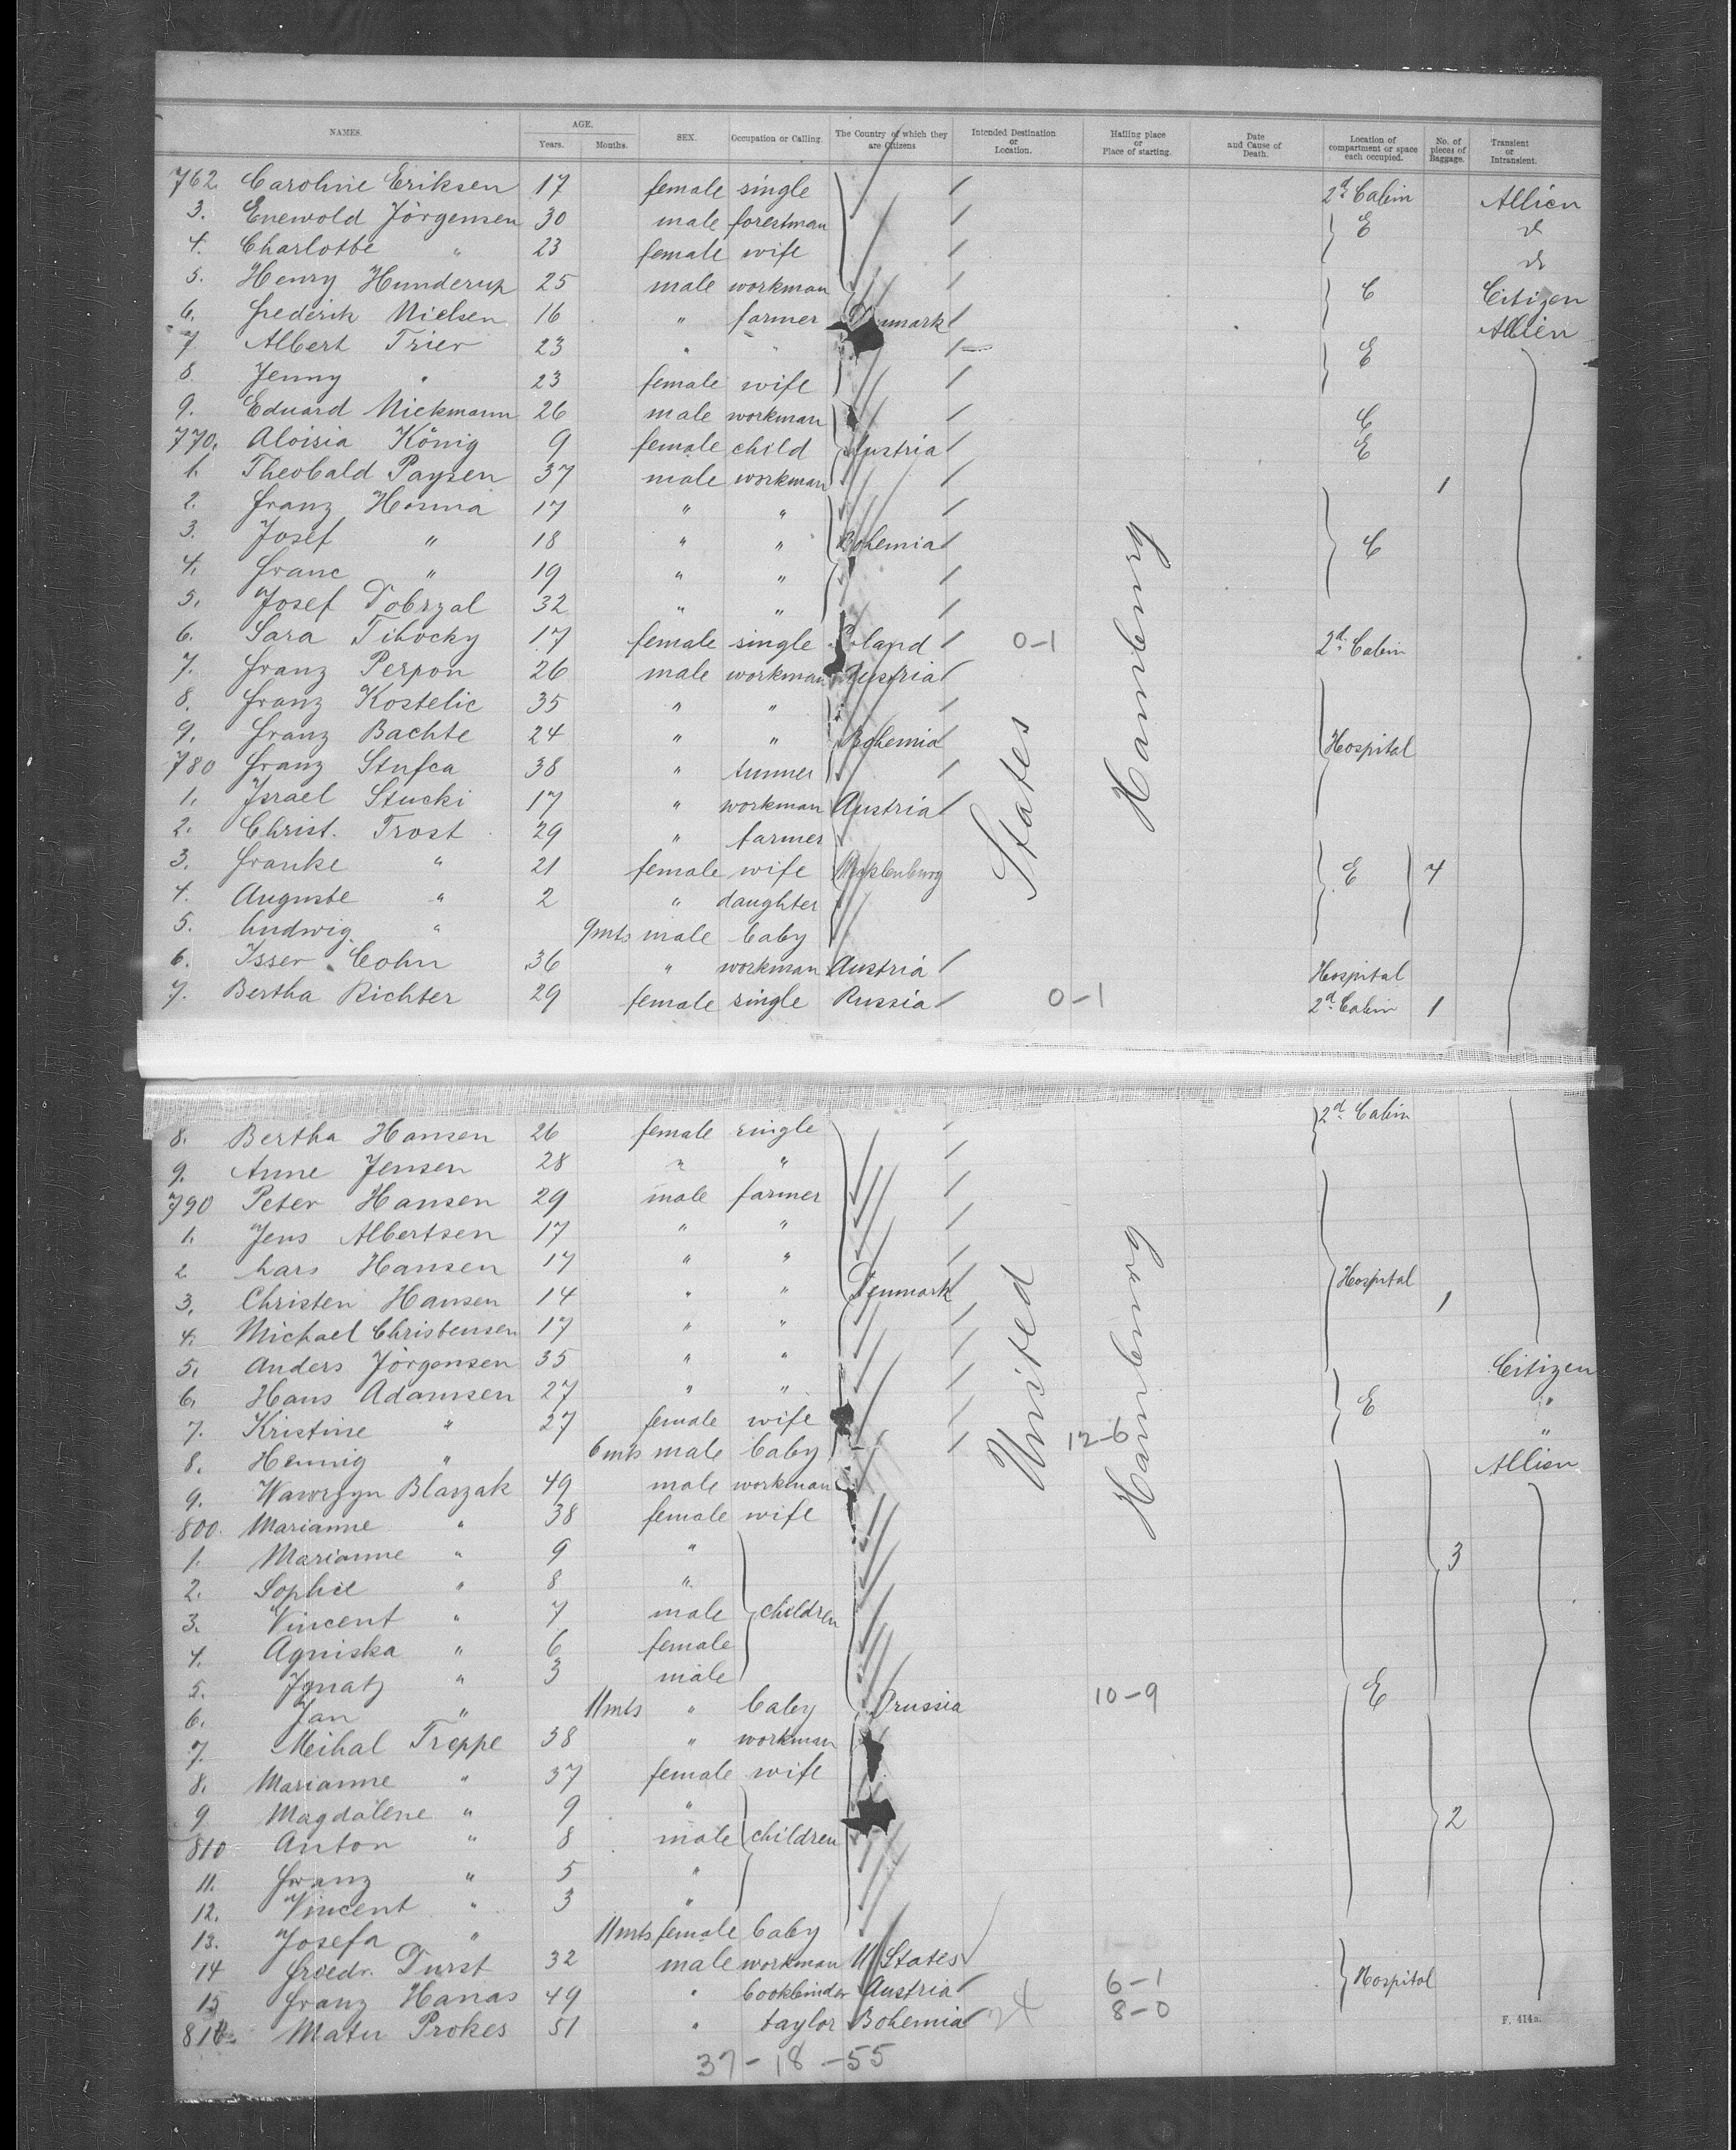 NAMES. AGE. Years. Months. SEX. Occupation or Calling. The Country of which they are Citizens Intended Destination or Location. Hailing place or Place of starting. Date and Cause of Death. Location of compartment or space each occupied. No. of pieces of Baggage. Transient or Intransient.
762. Caroline Eriksen 17 female single / 2d Cabin Allien
3. Enewold Jörgensen 30 male forestman / E do
4. Charlotte " 23 female wife / do
5. Henry Hunderup 25 male workman / C Citizen
6. Frederik Nielsen 16 " farmer Denmark / Allien
7 Albert Trier 23 " " / E
8. Jenny " 23 female wife /
9. Eduard Nickmann 26 male workman / C
770. Aloisia König 9 female child Austria / E
1. Theobald Paysen 37 male workman / 1
2. Franz Hanna 17 " " /
3. Josef " 18 " " Bohemia / C
4. Franc " 19 " " /
5. Josef Dobrzal 32 " " /
6. Sara Tihocky 17 female single Poland / 0-1 2d Cabin
7. Franz Perpon 26 male workman Austria /
8. Franz Kostelic 35 " " /
9. Franz Bachte 24 " " Bohemia / Hospital
780 Franz Stufca 38 " tunner /
1. Israel Stucki 17 " workman Austria /
2. Christ. Trost 29 " farmer
3. Franke " 21 female wife Mecklenburg E 4
4. Auguste " 2 " daughter
5. Ludwig " 9mts male baby
6. Isser Cohn 36 " workman Austria / Hospital
7. Bertha Richter 29 female single Russia / 0-1 2d Cabin 1
States
Hamburg
8. Bertha Hansen 26 female single / 2d Cabin
9. Anne Jensen 28 " " /
790 Peter Hansen 29 male farmer /
1. Jens Albertsen 17 " " /
2 Lars Hansen 17 " " /
3. Christen Hansen 14 " " Denmark / Hospital 1
4. Michael Christensen 17 " " /
5. Anders Jörgensen 35 " " / Citizen
6. Hans Adamsen 27 " " / E "
7. Kristine " 27 female wife / 12-6 "
8. Hennig " 6mts male baby / Allien
9. Wawrzyn Blaszak 49 male workman
800. Marianne " 38 female wife
1. Marianne " 9 " 3
2. Sophie " 8 "
3. Vincent " 7 male children
4. Agniska " 6 female
5. Ignatz " 3 male
6. Jan " 11mts " baby Prussia 10-9 E
7. Meihal Treppe 38 " workman
8. Marianne " 37 female wife
9 Magdalene " 9 "
810 Anton " 8 male children 2
11. Franz " 5 "
12. Vincent " 3 "
13. Josefa " 11mts female baby
14 Froedr. Durst 32 male workman U States
15 Franz Hanas 49 " bookbinder Austria / 6-1 Hospital
816. Matu Prokes 51 " taylor Bohemia / 24 8-0
United
Hamburg
37-18-55
F. 414a.